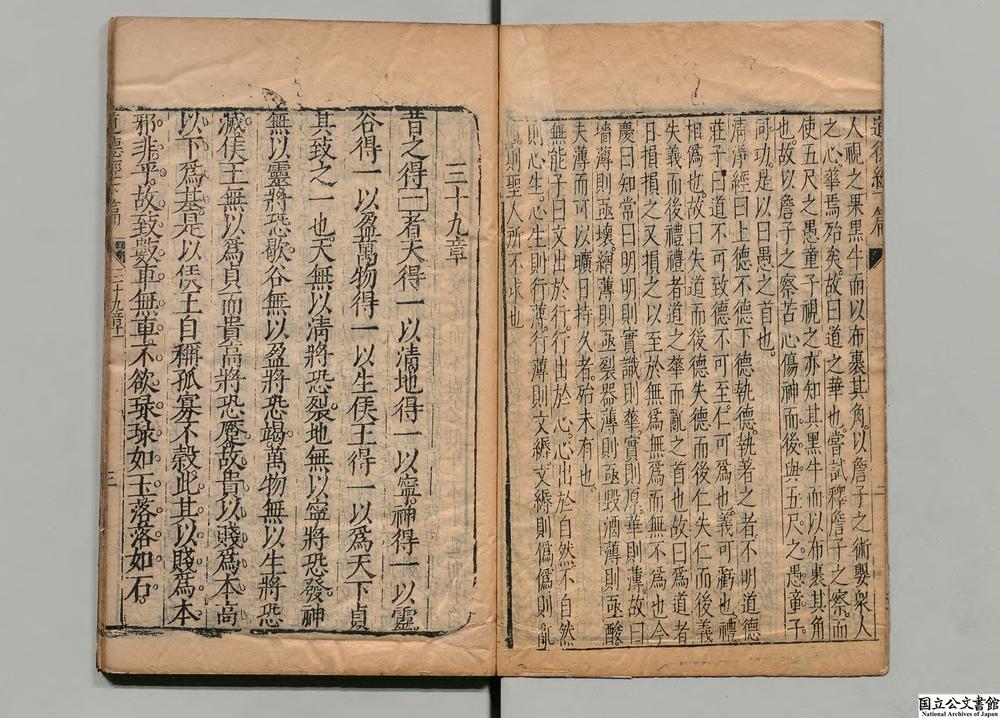 人視之果黑牛而以布裹其角以詹子之術嬰衆人
之心華焉殆矣故曰道之華也嘗試釋詹子之察而
使五尺之愚童子視之亦知其黑牛而以布裹其角
也故以詹子之察苦心傷神而後與五尺之愚童子
同功是以曰愚之首也
清淨經曰上德不德下德執德執著之者不明道德
莊子曰道不可致德不可至仁可爲也義可虧也禮
相僞也故曰失道而後德失德而後仁失仁而後義
失義而後禮禮者道之華而亂之首也故曰爲道者
日損損之又損之以至於無爲無爲而無不爲也今
慶曰知常曰明明則實識則華實則原華則薄故曰
墻薄則亟壞繒薄則亟裂器薄則亟毀酒薄則亟酸
夫薄而可以曠日持久者殆未有也
無能子曰文出於行行出於心心出於自然不自然
則心生心生則行薄行薄則文縟文縟則僞僞則亂
亂則聖人所不求也
三十九章
昔之得一者天得一以清地得一以寧神得一以靈
谷得一以盈萬物得一以生侯王得一以爲天下貞
其致之一也天無以清將恐裂地無以寧將恐發神
無以靈將恐歇谷無以盈將恐竭萬物無以生將恐
滅侯王無以爲貞而貴高將恐蹷故貴以賤爲本高
以下爲基是以侯王自稱孤寡不穀此其以賤爲本
邪非乎故致數車無車不欲琭琭如玉落落如石
道德經 篇 三十九章 三
国立公文書館
National Archives of Japan